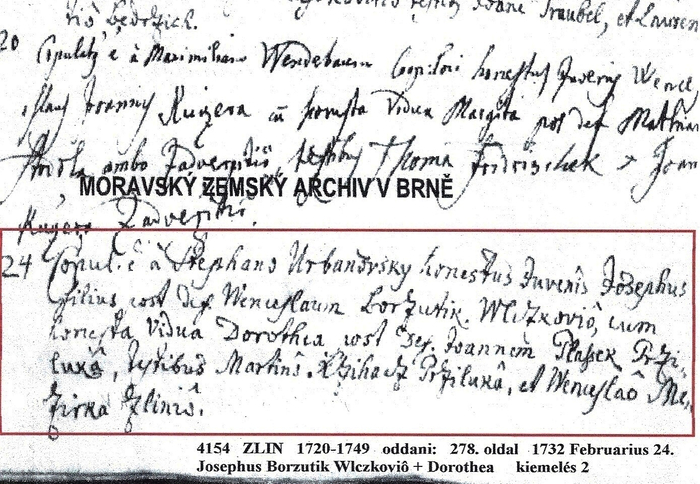 Joane Straubel, et Lauren
tio bedrzich.
20 Copulatg ē à Maximiliano Wendebaum honestus Juvenis Wence
slaus Joannis Kuczera cū honesta Vidua Margita post def Mathia
ambo Zadveritii, testibg Thoma Fridrischek Joan
MORAVSKÝ ZEMSKÝ ARCHIV V BRNĚ
Kuczera Zadveritii.
24 Copul. ē à Stephano Urbanovsky honestus Juvenis Josephus
filius post def Wenceslaum Borzutik Wlczkoviô, cum
honesta Vidua Dorothea post def. Joannem Plassek Przi
lukâ, testibus Martinô Przilukâ, et Wenceslaô Me
zirka Zliniô.
4154 ZLIN 1720-1749 oddani: 278. oldal 1732 Februarius 24.
Josephus Borzutik Wlczkoviô + Dorothea kiemelés 2